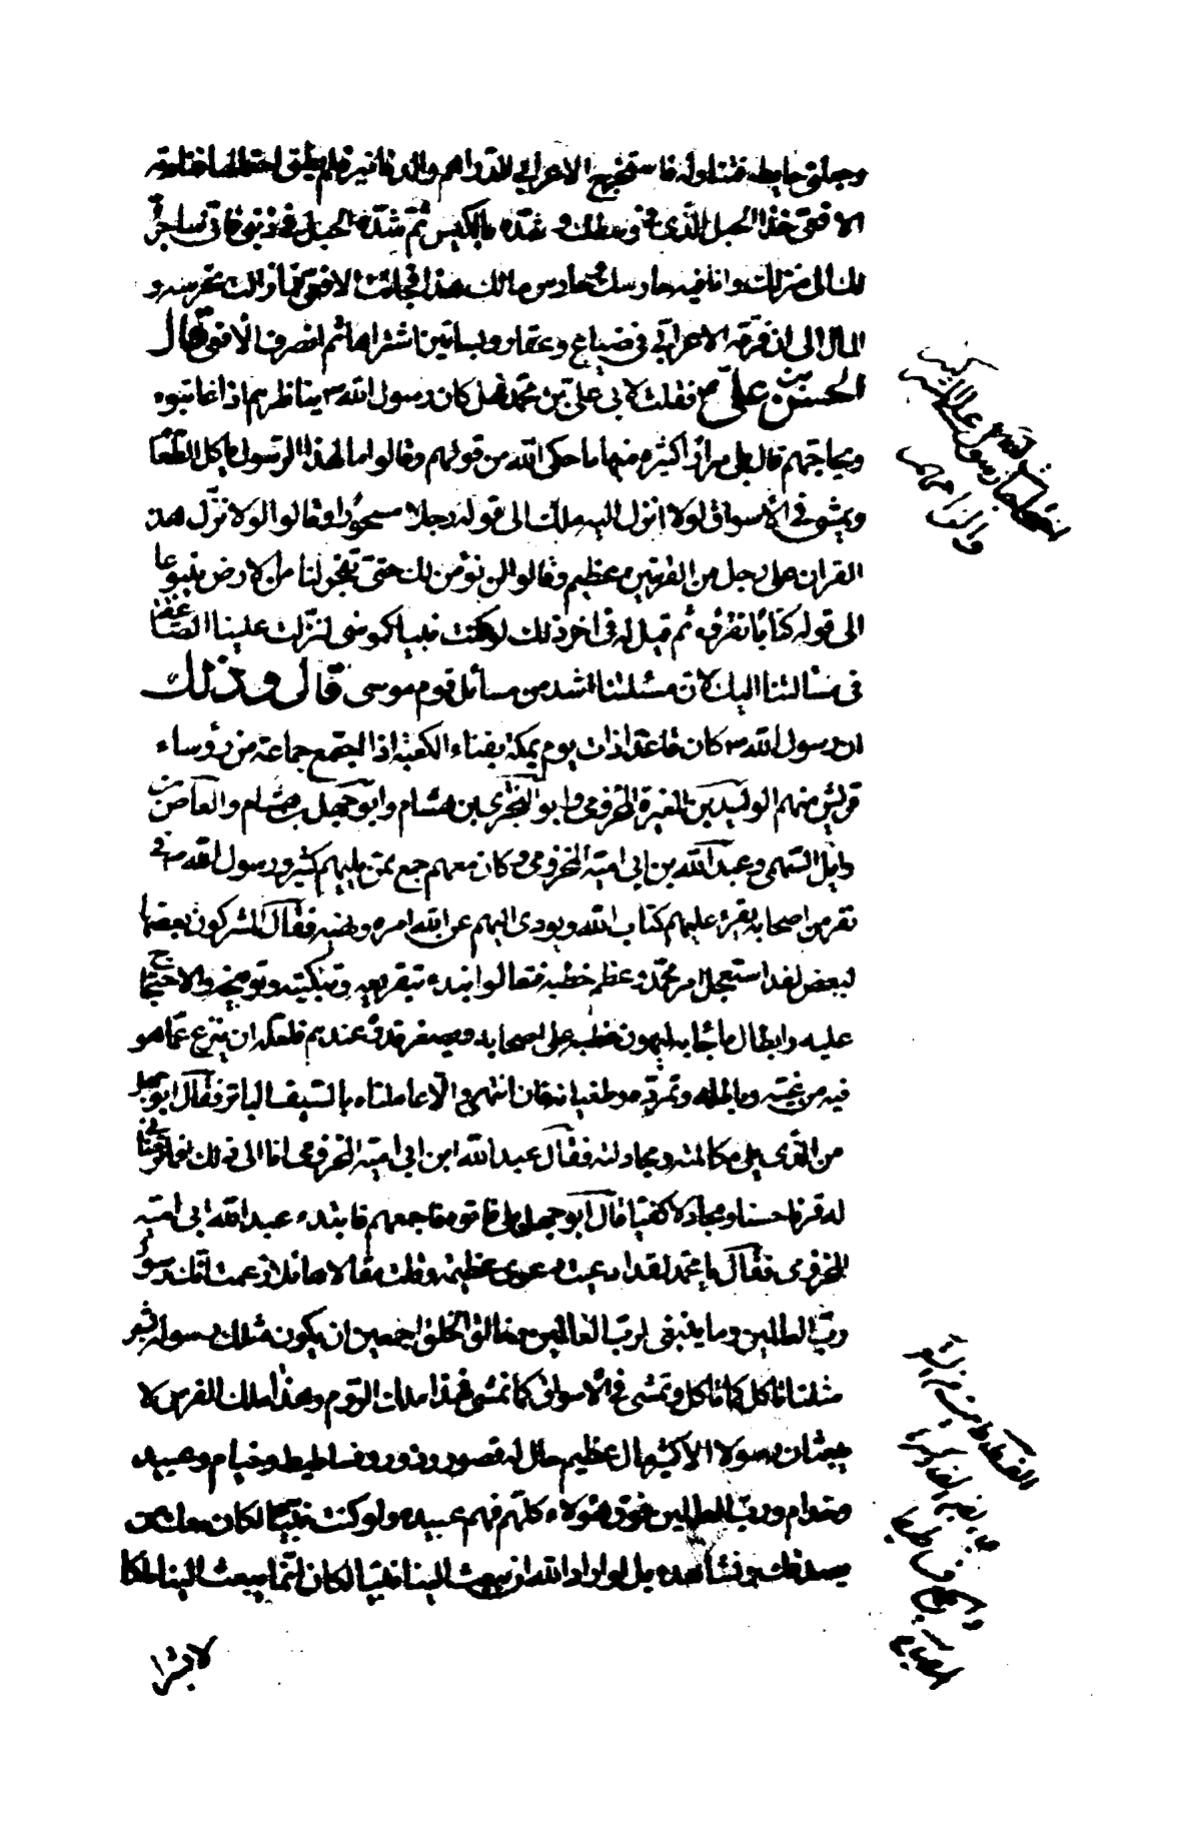 وجلق حايطه فتناوله فاستخرج الاعرابي الدراهم والدنانير فلم يطق احتمالها فنادته
الافعى خذ الحبل الذى فى وسطك وشده بالكيس ثم شده الحبل فى ذنبى فانى ساجره
لك الى منزلك وانا فيه حارسك وحارس مالك هذا فجائت الافعى فما زالت تحرسه و
المال الى ان فرقه الاعرابى فى ضياع وعقار وبساتين اشتراها ثم انصرف الافعى قال
الحسن بن على ع فقلت لابى على بن محمد فهل كان رسول الله ص يناظرهم اذا عاتبوه
ويحاجهم قال بلى مرارا كثيره منها ما حكى الله من قولهم وقالوا ما لهذا الرسول ياكل الطعام
ويمشى فى الأسواق لولا انزل اليه ملك الى قوله رجلا مسحورا وقالوا لولا نزل هذا
القران على رجل من القريتين عظيم وقالوا لن نؤمن لك حتى تفجر لنا من الارض ينبوعا
الى قوله كتابا نقرؤه ثم قيل له فى اخر ذلك لو كنت نبيا كموسى لنزلت علينا الصاعقة
فى مسالتنا اليك لان مسئلتنا اشد من مسائل قوم موسى قال وذلك
ان رسول الله ص كان قاعدا ذات يوم بمكة بفناء الكعبه اذا اجتمع جماعة من رؤساء
قريش منهم الوليد بن المغيرة المخزومى وابو البخترى بن هشام وابو جهل بن هشام والعاص بن
وايل السهمى وعبد الله بن ابى امية المخزومى وكان معهم جمع ممن يليهم كثير ورسول الله ص فى
نفر من اصحابه يقرء عليهم كتاب الله ويودى اليهم عن الله امره ونهيه فقال المشركون بعضهم
لبعض لقد استفحل امر محمد وعظم خطبه فتعالوا نبدء بتقريعه وتبكيته وتوبيخه والاحتجاج
عليه وابطال ما جابه ليهون خطبه على اصحابه ويصغر قدره عندهم فلعله ان ينزع عما هو
فيه من غيه وباطله وتمرده وطغيانه فان انتهى والا عاملناه بالسيف الباتر فقال ابو جهل
من الذى يلى مكالمته ومجادلته فقال عبد الله ابن ابى امية المخزومى انا الى ذلك افما ترضانى
له قرنا حسنا ومجادلا كفيا قال ابو جهل بلى فاتوه باجمعهم فابتدء عبد الله ابى امية
المخزومى فقال يا محمد لقد ادعيت دعوى عظيمة وقلت مقالا هائلا زعمت انك رسول
رب العالمين وما ينبغى لرب العالمين وخالق الخلق اجمعين ان يكون مثلك رسوله بشر
مثلنا تاكل كما ناكل وتمشى فى الاسواق كما نمشى فهذا ملك الروم وهذا ملك الفرس لا
يبعثان رسولا الا كثير مال عظيم حال له قصور ودور وفساطيط وخيام وعبيد
وخدام ورب العالمين فوق هؤلاء كلهم فهم عبيده ولو كنت نبيا لكان معك ملك
يصدقك ونشاهده بل لو اراد الله ان يبعث الينا نبيا لكان انما يبعث الينا ملكا
لا بشرا